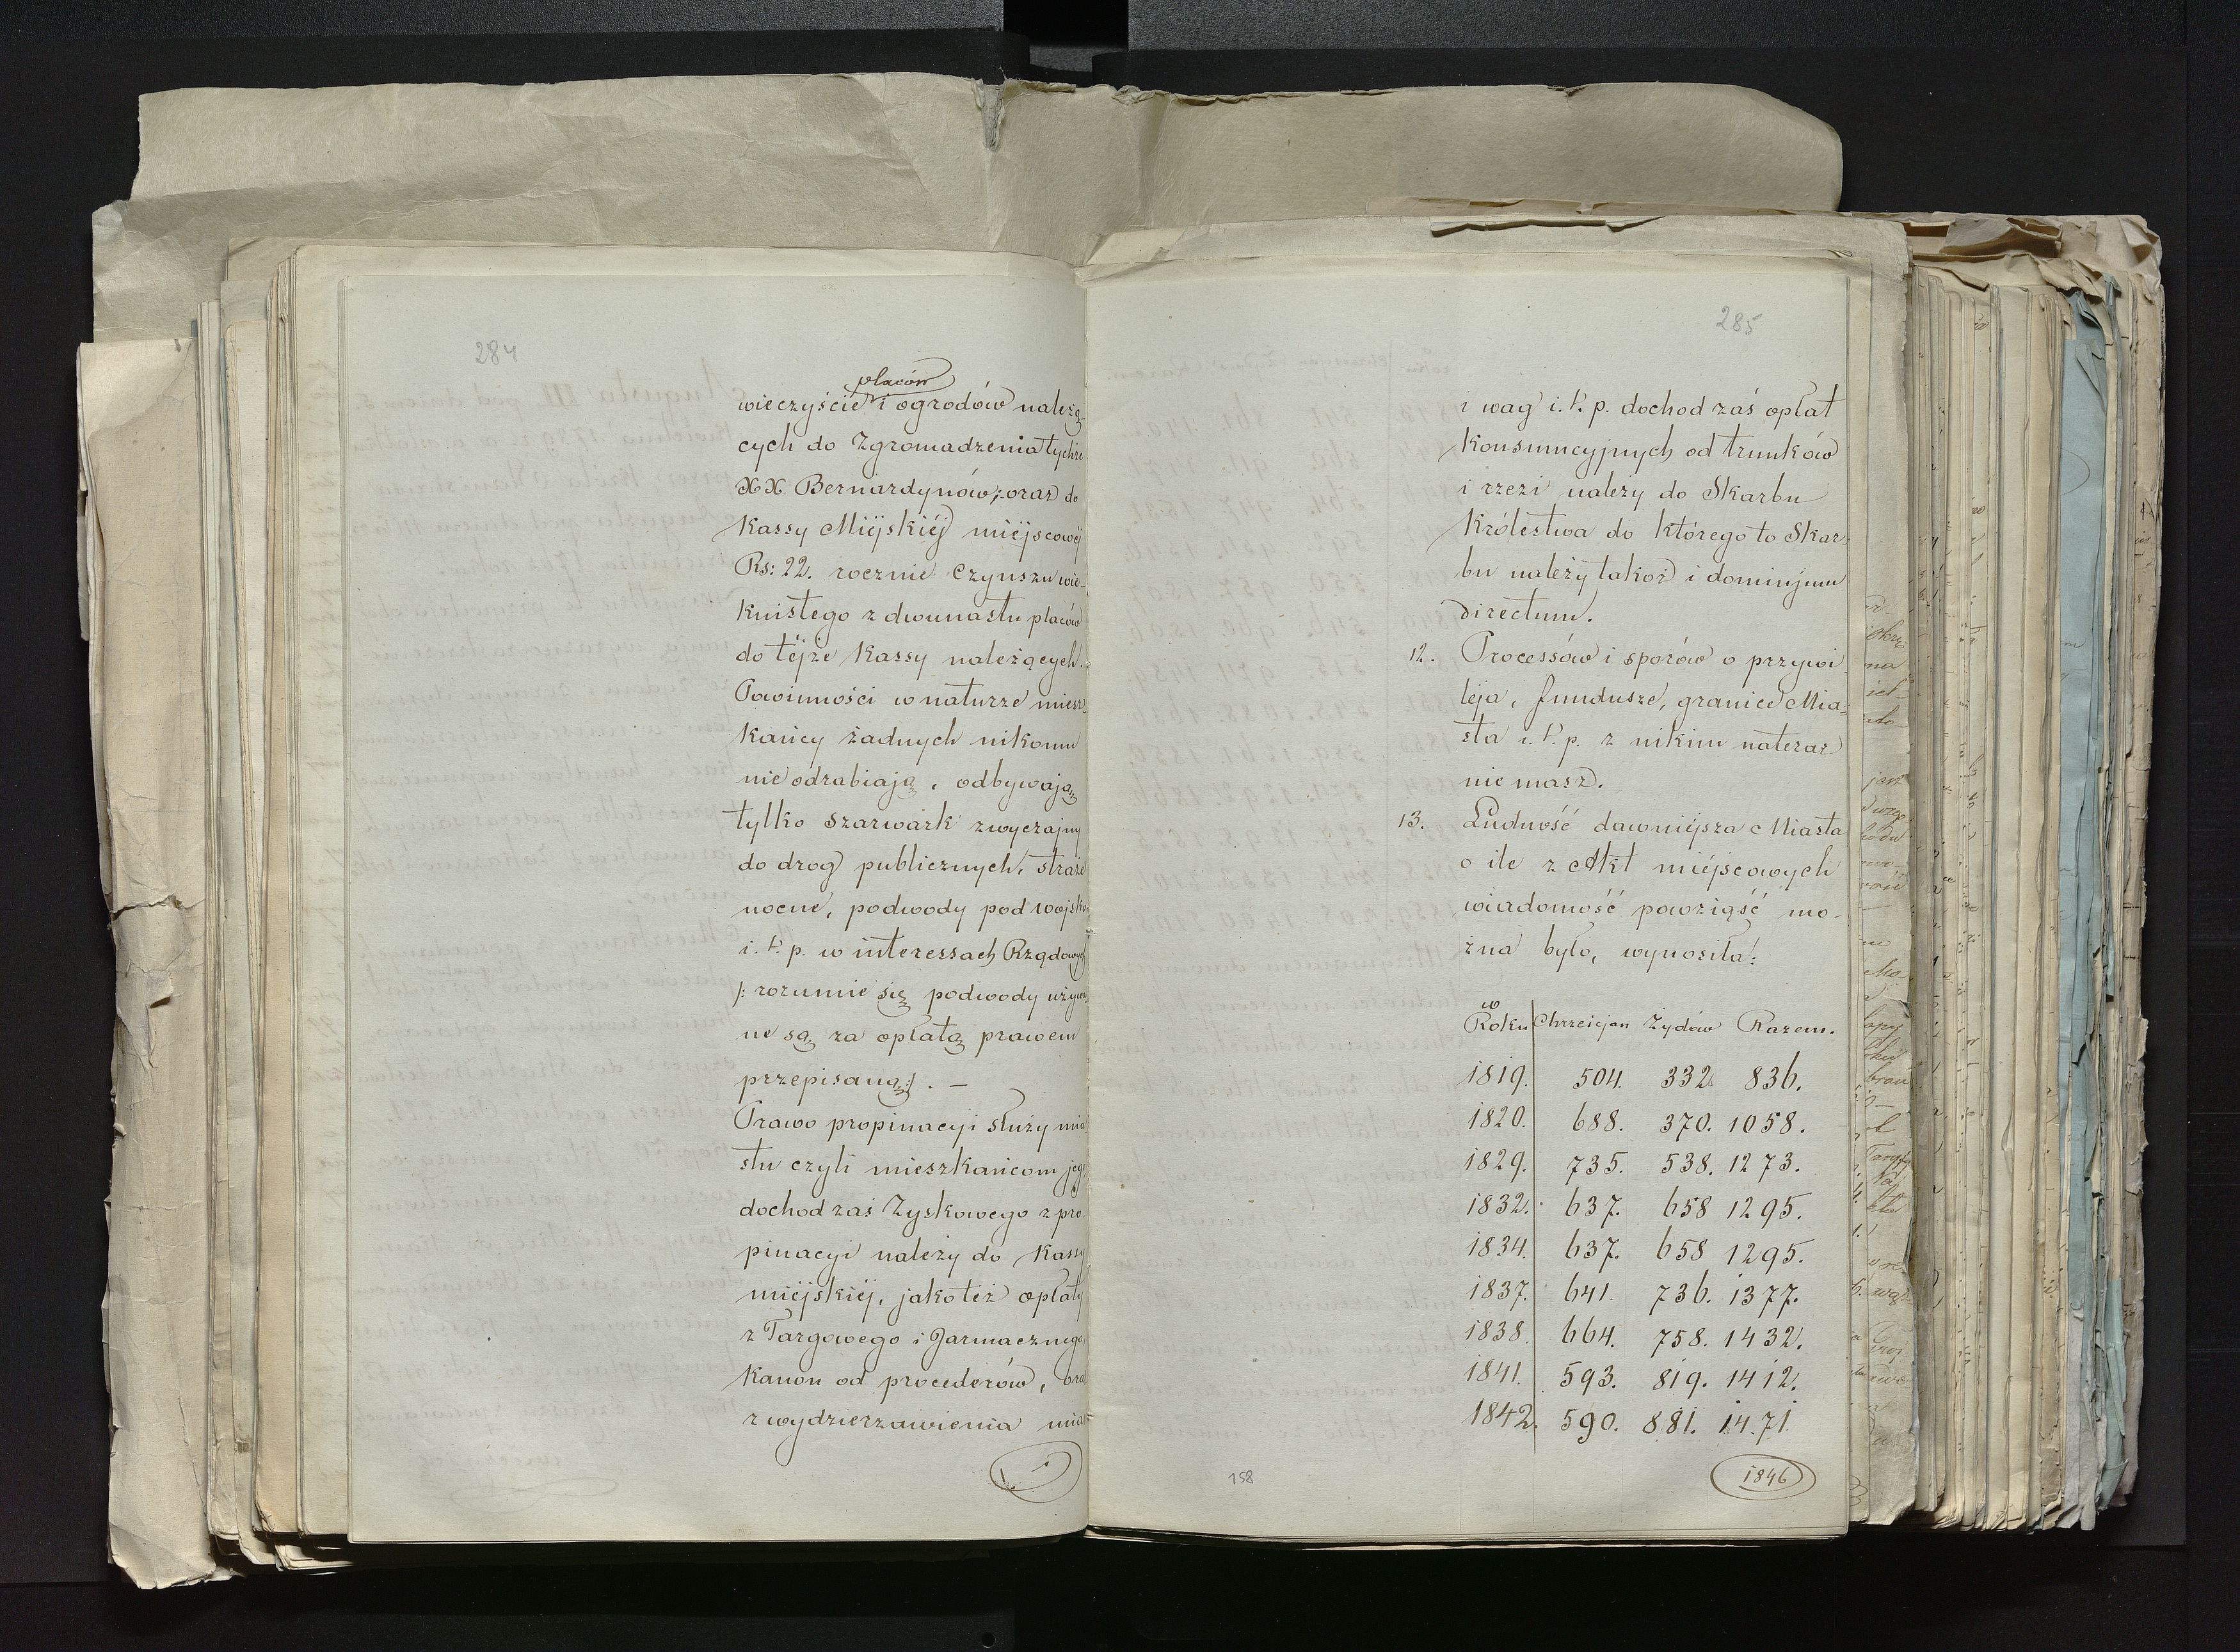 284
placów
wieczyście i ogrodów należą-
cych do Zgromadzenia tychże
XX Bernardynów; oraz do
Kassy Miéjskiéj miéjscowéj
Rs: 22. rocznie Czynszu wie-
kuistego z dwunastu placów
do téjże Kassy należących.
Powinności w naturze miesz-
kańcy żadnych nikomu
nie odrabiają, odbywają
tylko szarwark zwyczajny
do drog publicznych, straże
nocne, podwody pod wojsko
i. t. p. w interessach Rządowych
/: rozumie się podwody używa
ne są za opłatą prawem
przepisaną :/. —
Prawo propinacyi służy mia
stu czyli mieszkańcom jego
dochod zaś Zyskowego z pro
pinacyi należy do Kassy
miéjskiéj, jakoteż opłaty
z Targowego i Jarmacznego
Kanon od procederów, oraz
z wydzierzawienia miar
i
285
i wag i. t. p. dochod zaś opłat
Konsumcyjnych od trunków
i rzezi należy do Skarbu
Królestwa do którego to Skar-
bu należy takoż i dominjum
directum.
12. Processów i sporów o przywi
leja, fundusze, granice Mia-
sta i. t. p. z nikim nateraz
nie masz.
13. Ludność dawniéjsza Miasta
o ile z Akt miéjscowych
wiadomość powziąść mo-
żna było, wynosiła:
w
Roku Chrześcjan Żydów Razem.
1819. 504. 332. 836.
1820. 688. 370. 1058.
1829. 735. 538. 1273.
1832. 637. 658 1295.
1834. 637. 658 1295.
1837. 641. 736. 1377.
1838. 664. 758. 1432.
1841. 593. 819. 1412.
1842. 590. 881. 1471
1846
158